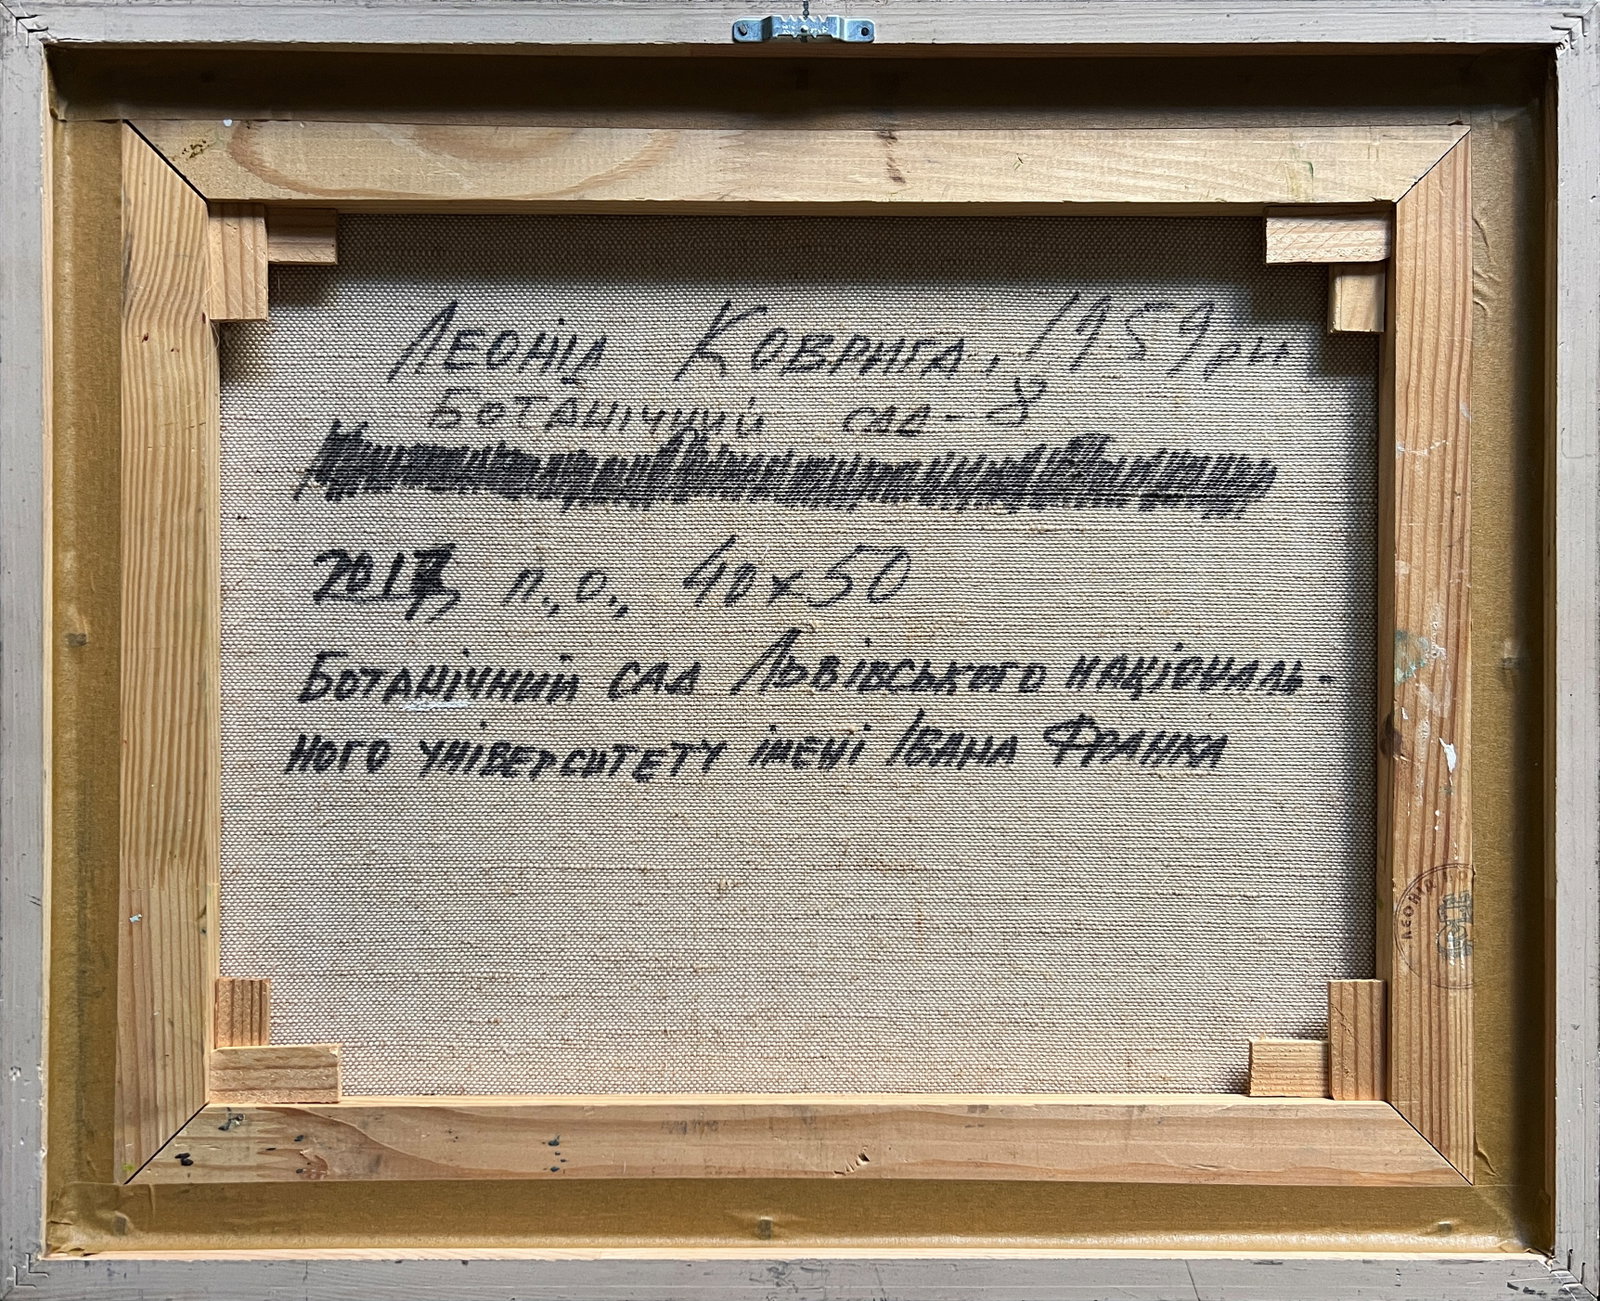 Леонід Коврига, 1959 рн
Ботанічний сад-8
2017, п.,о., 40х50
Ботанічний сад Львівського національ-
ного університету імені Івана Франка
ЛЕОНІД